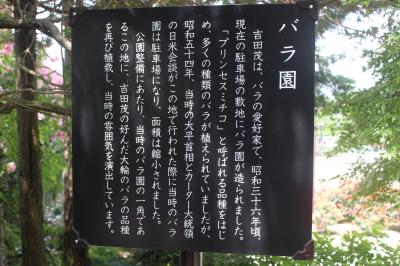 バラ園
吉田茂は、バラの愛好家で、昭和三十六年頃、
現在の駐車場の敷地にバラ園が造られました。
「プリンセスミチコ」と呼ばれる品種をはじ
め、多くの種類のバラが植えられていましたが、
昭和五十四年、当時の大平首相とカーター大統領
の日米会談がこの地で行われた際に当時のバラ
園は駐車場になり、面積は縮小されました。
公園整備にあたり、当時のバラ園の一角であ
るこの地に、吉田茂の好んだ大輪のバラの品種
を再び植栽し、当時の雰囲気を演出しています。